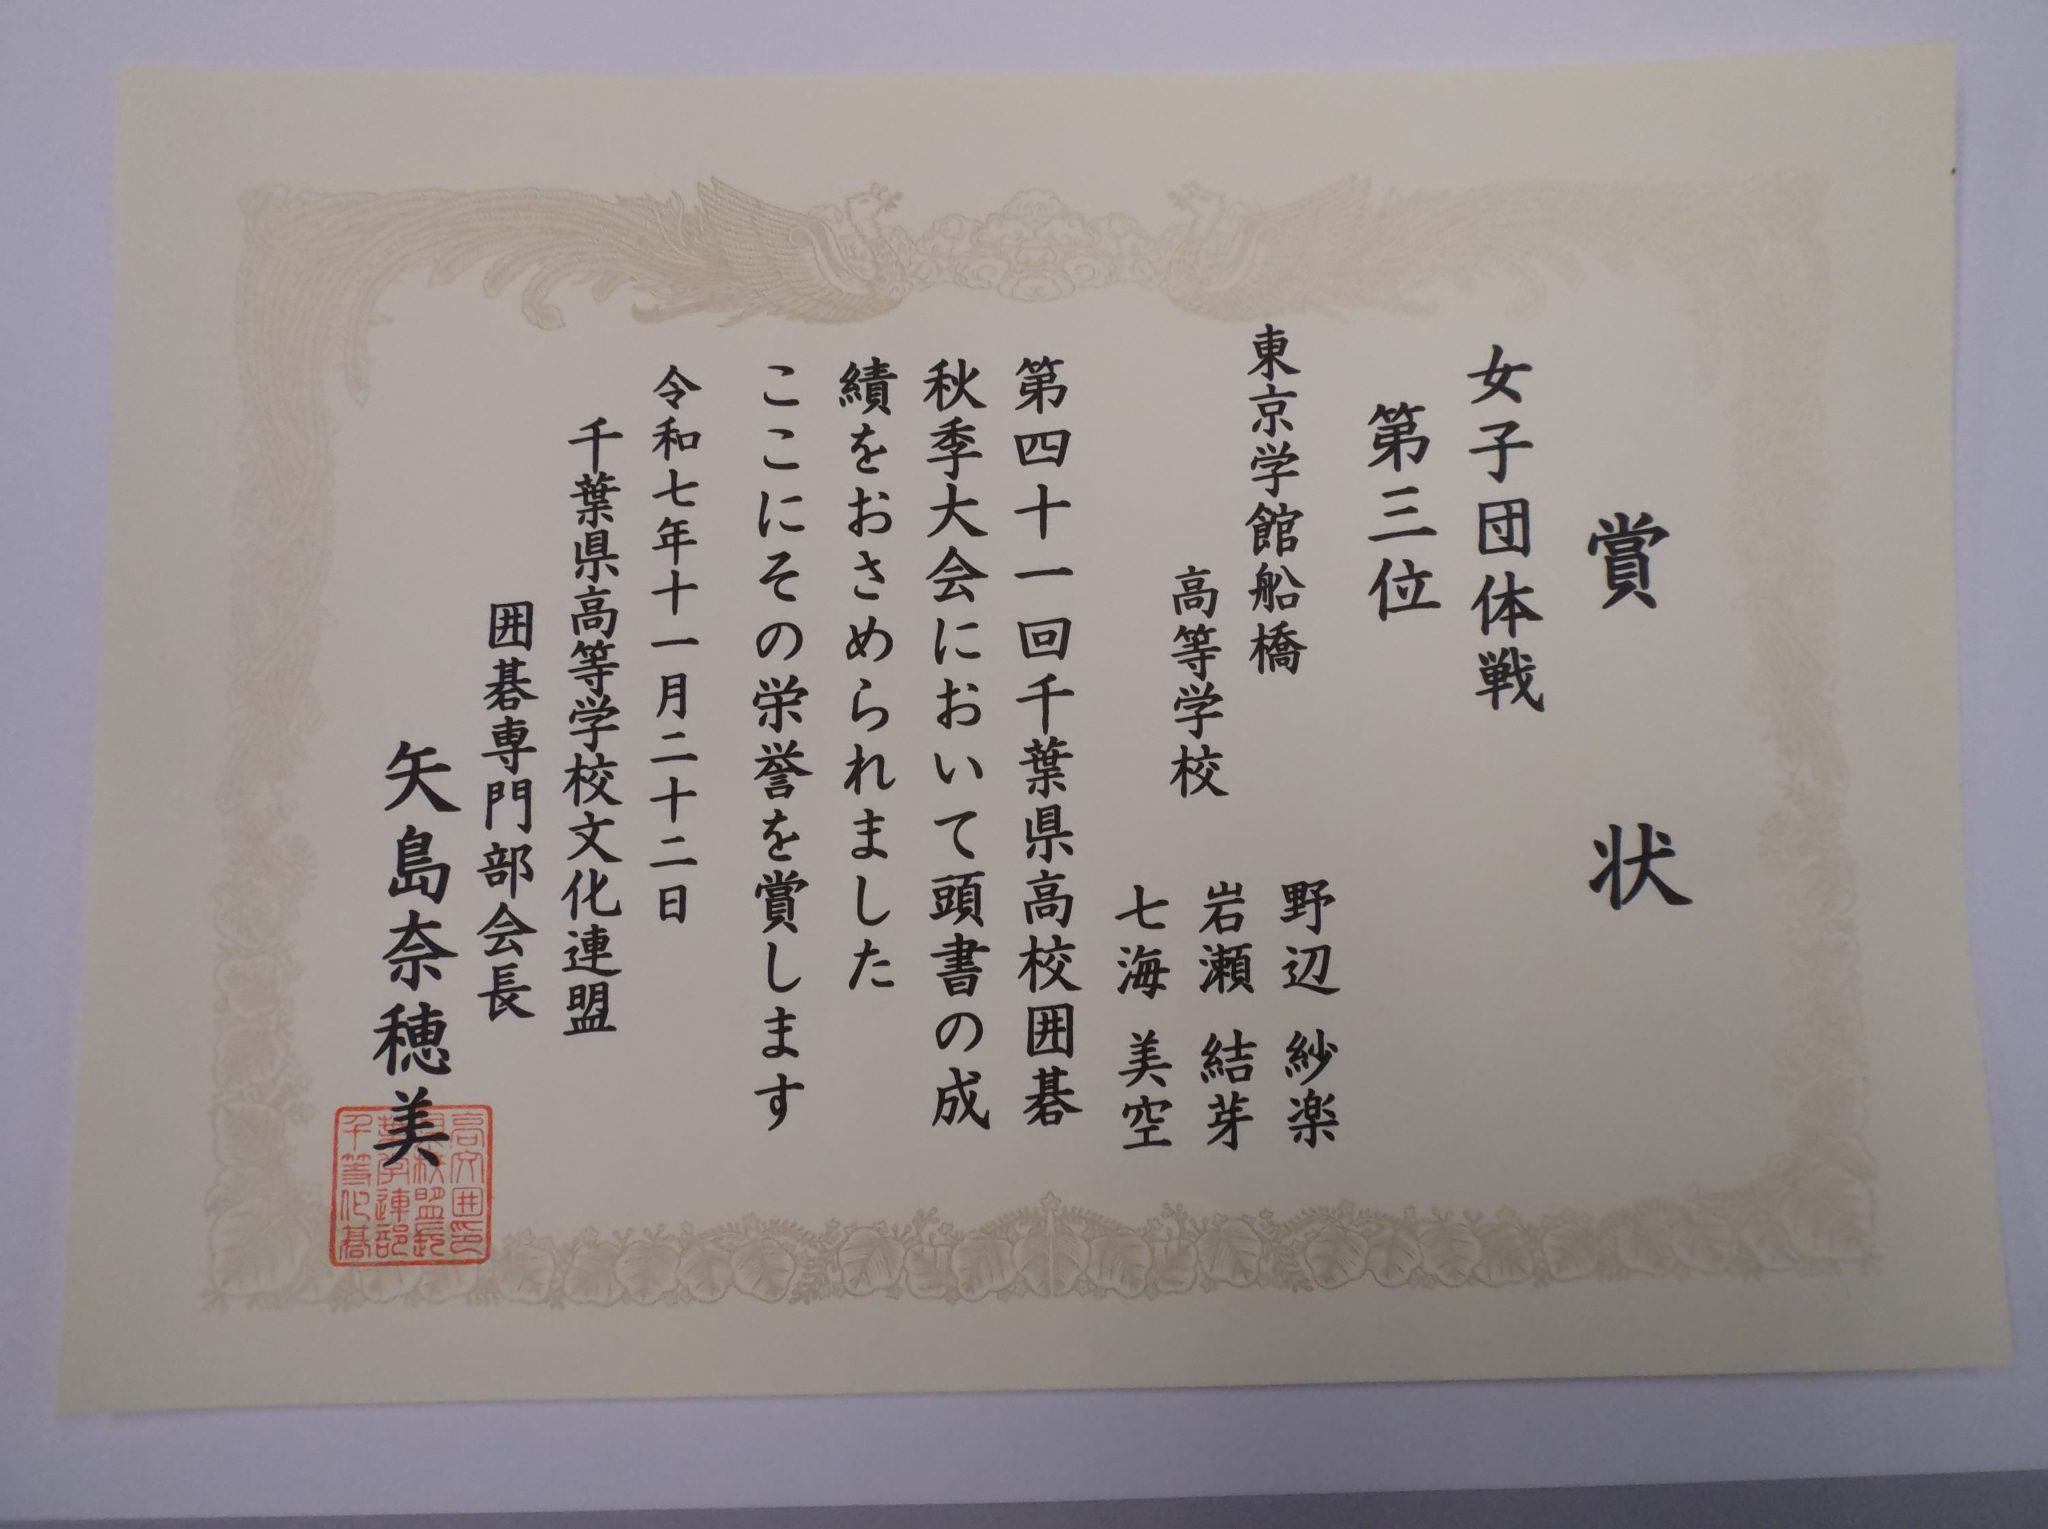 賞状
女子団体戦
第三位
東京学館船橋
高等学校
野辺 紗楽
岩瀬 結芽
七海 美空
第四十一回千葉県高校囲碁
秋季大会において頭書の成
績をおさめられました
ここにその栄誉を賞します
令和七年十一月二十二日
千葉県高等学校文化連盟
囲碁専門部会長
矢島奈穂美